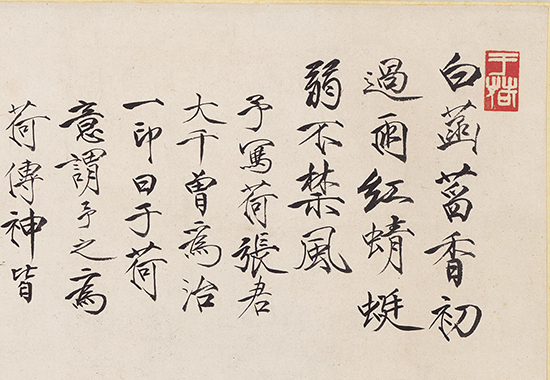 于荷
白菡萏香初
過雨紅蜻蜓
弱不禁風
予寫荷張君
大千曾為治
一印曰于荷
意謂予之為
荷傳神皆